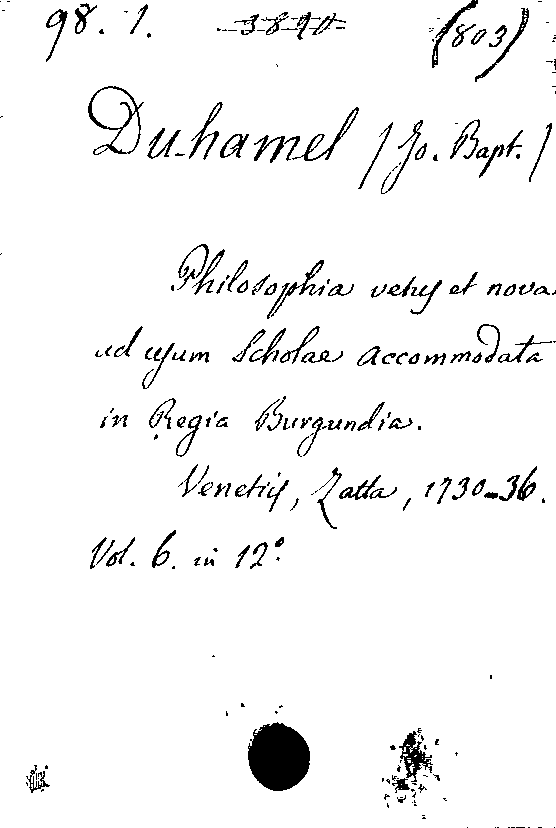 98. 1. 3890 (803)
Du-hamel / Jo. Bapt. /
Philosophia vetus et nova
ad usum Scholae accommodata
in Regia Burgundia.
Venetiis, Zatta, 1730-36.
Vol. 6. in 12°